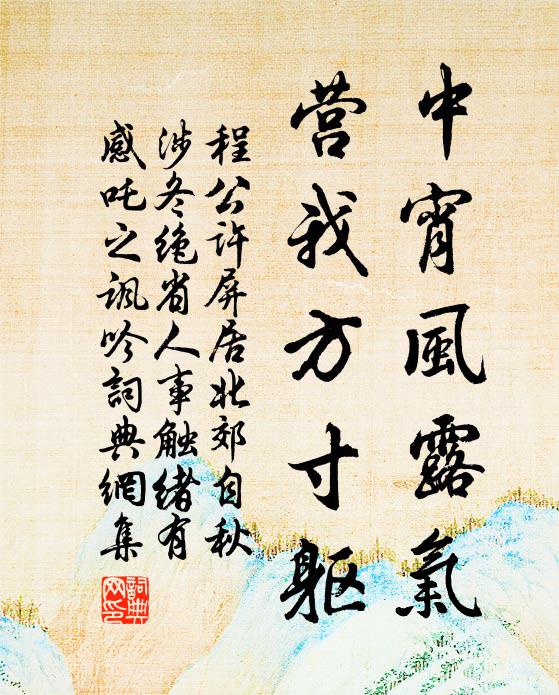 中宵風露氣
营我方寸躯
程公许屏居北郊自秋
涉冬绝省人事触绪有
感吒之讽吟詞典網集
詞典